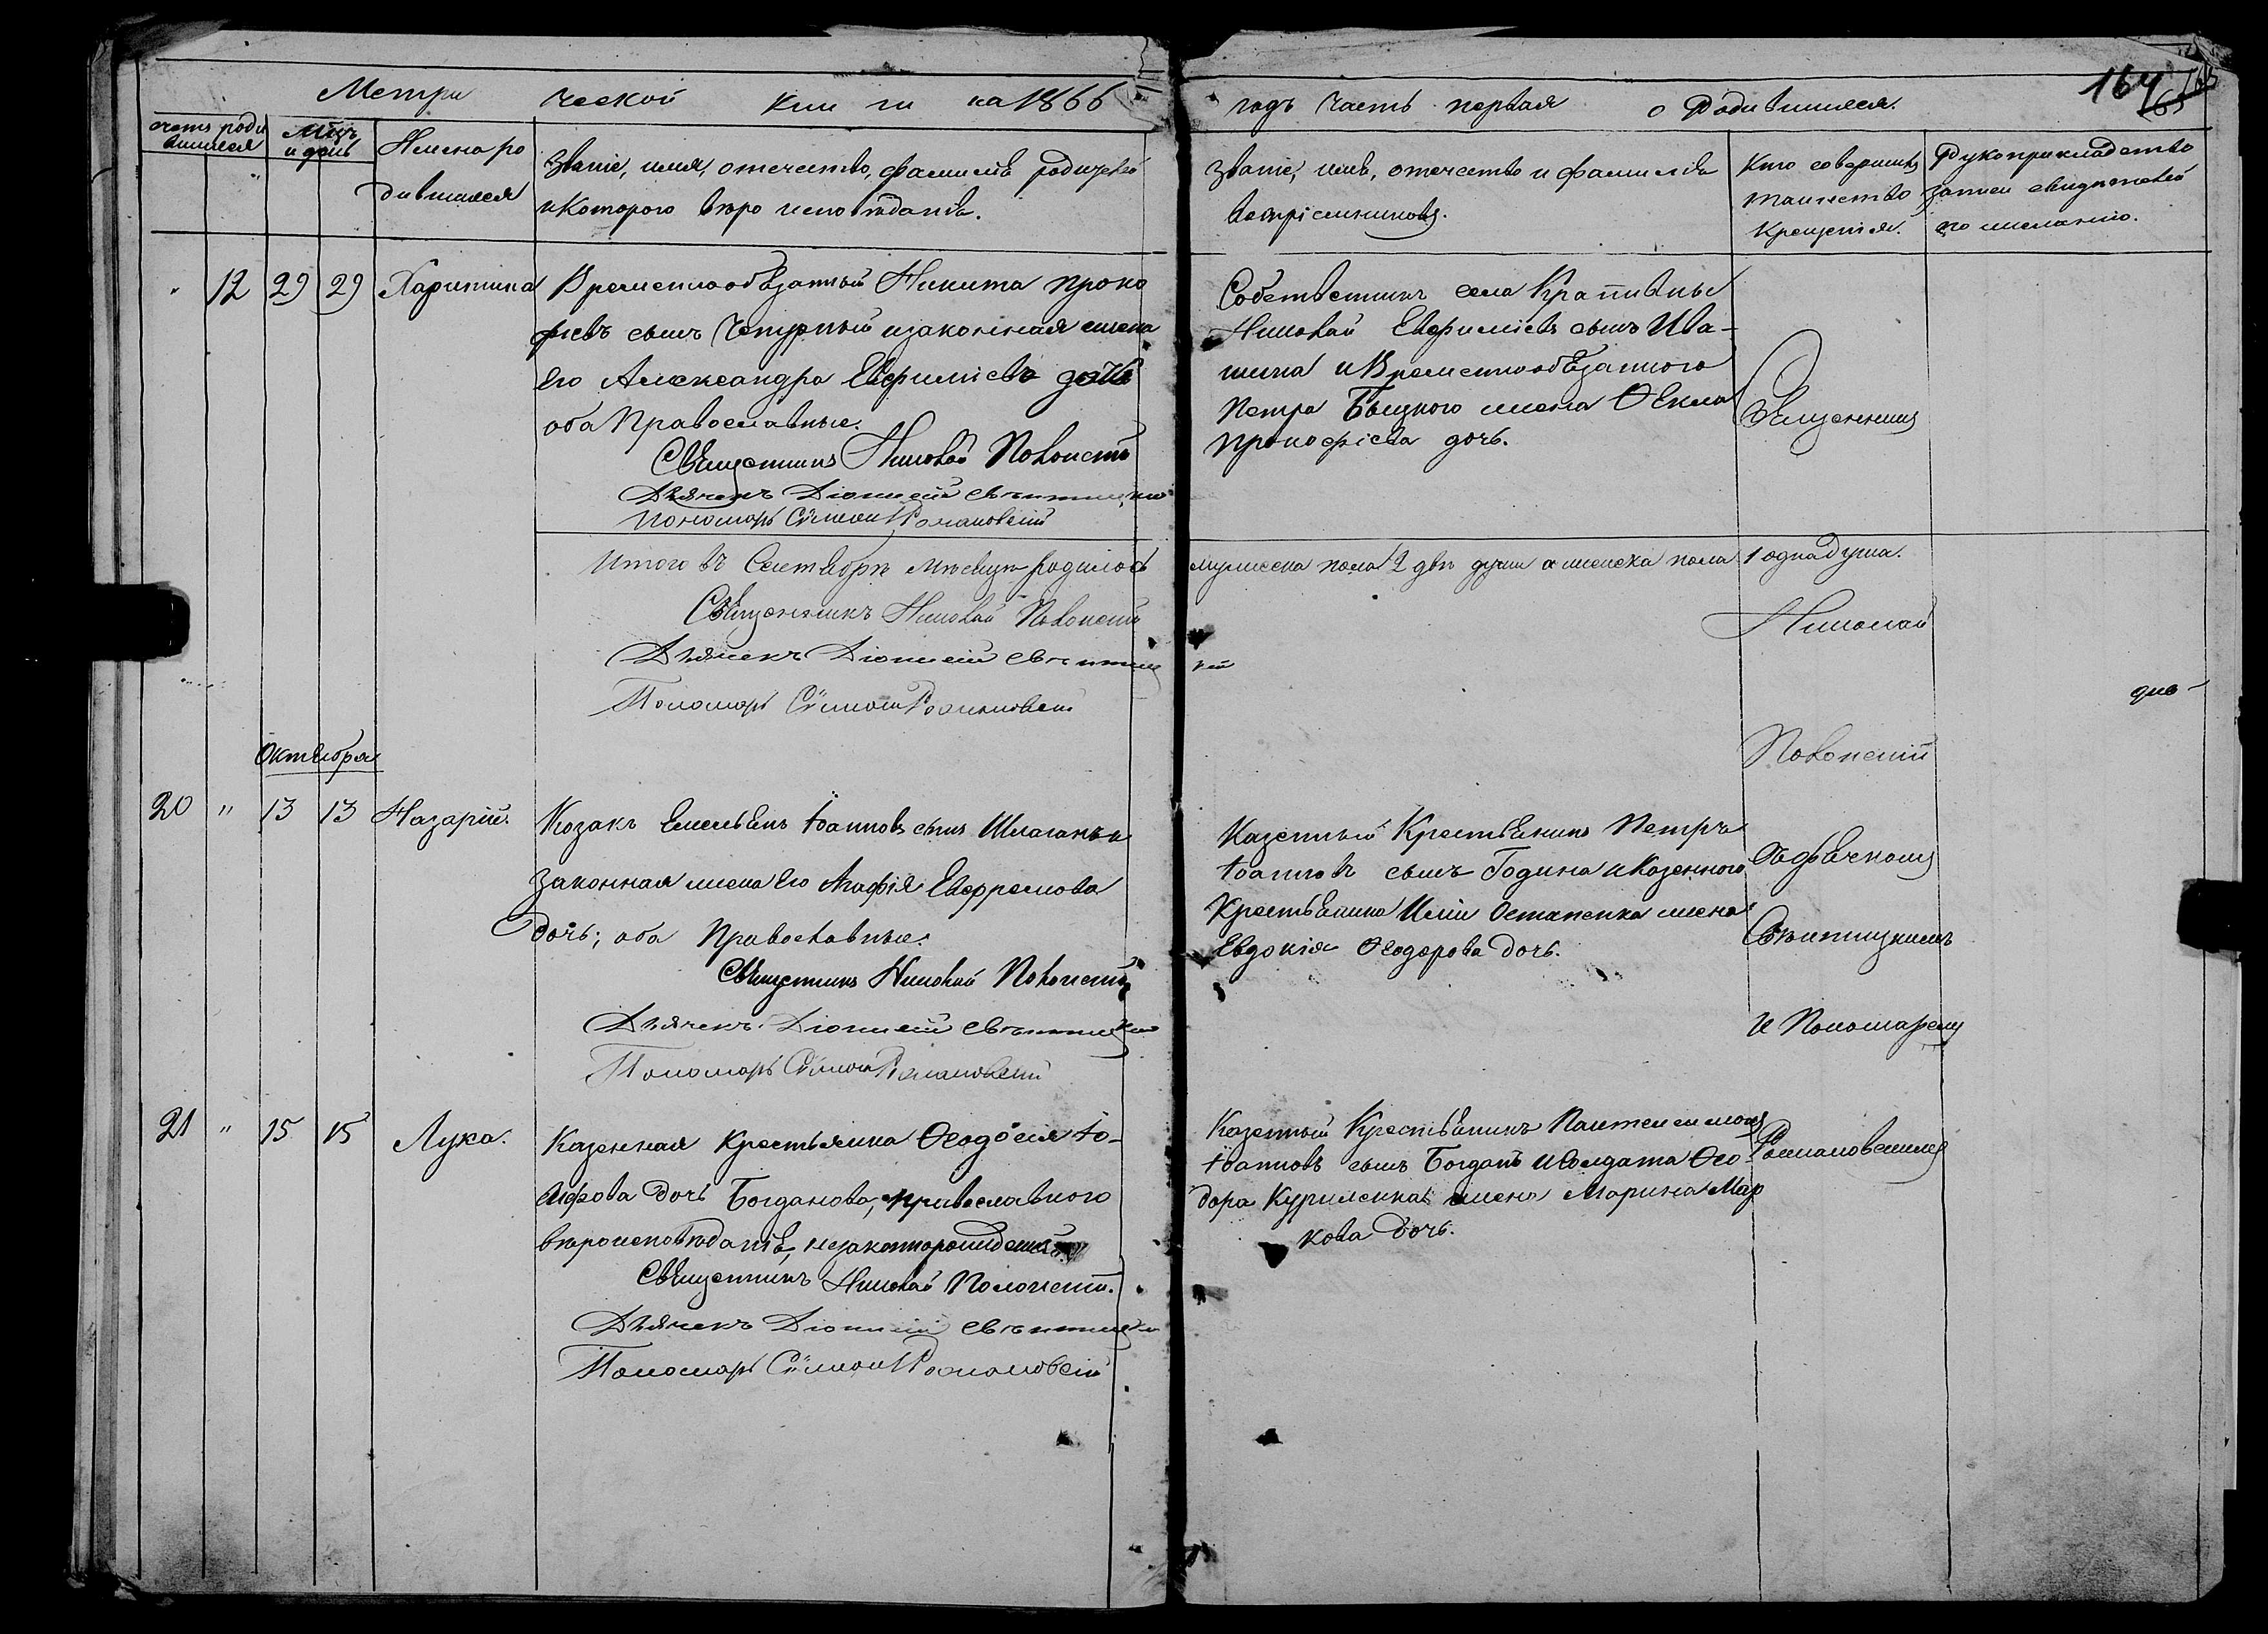 Метри ческой кни ги на 1866
годъ часть первая о Родившихся.
164
счетъ роди
вшихся
Мцъ
и день
Имена ро
дившихся
Званіе, имя, отечество, фамилія родителей
и которого вѣро исповѣданія.
Званіе, имя, отечество и фамилія
воспріемниковъ.
Кто совершилъ
таинство
крещенія.
Рукоприкладство
записи свидѣтелей
по желанію.
12 29 29 Харитина
Временнообязанный Никита Проко
фіевъ сынъ Чепурный и законная жена
его Александра Евфиміева дочь
оба Православные.
Священникъ Николай
Дьячекъ Діонисій Свѣнтицкій
Пономарь Симеонъ Романовскій
Собственникъ села Крапивны
Николай Евфиміевъ сынъ Ива-
шина и Временнообязанного
Петра Быцкого жена Ѳекла
Прокофіева дочь.
Священникъ
Итого въ Сентябрѣ мѣсяцѣ родилось
мужеска пола 2 двѣ души а женска пола 1 одна душа.
Священникъ Николай
Дьячекъ Діонисій Свѣнтицкій
Пономарь Симеонъ Романовскій
Николай
Октября
20 " 13 13 Назарій.
Козакъ Емельянъ Іоанновъ сынъ и
законная жена его Агафія Евфремова
дочь; оба Православные.
Священникъ Николай
Дьячекъ Діонисій Свѣнтицкій
Пономарь Симеонъ Романовскій
Казенный Крестьянинъ Петръ
Іоанновъ сынъ Година и Казенного
Крестьянина Иліи Остапенка жена
Евдокія Ѳеодорова дочь.
съ дьячкомъ
Свѣнтицкимъ
и Пономаремъ
21 " 15 15 Лука.
Казенная Крестьянка Ѳеодосія Іо-
сифова дочь Богданова, православного
вѣроисповѣданія, незаконнорожденный
Священникъ Николай
Дьячекъ Діонисій Свѣнтицкій
Пономарь Симеонъ Романовскій
Казенный Крестьянинъ Пантелеимонъ
Іоанновъ сынъ Богданъ и солдата Ѳео-
дора Куриленка жена Марина Мар
кова дочь.
Романовскимъ